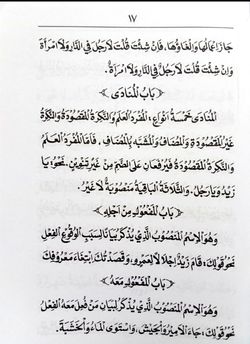 ١٧
جَازَ إِعْمَالُهَا وَإِلْغَاؤُهَا، فَإِنْ شِئْتَ قُلْتَ لَا رَجُلَ فِي الدَّارِ وَلَا امْرَأَةَ
وَإِنْ شِئْتَ قُلْتَ لَا رَجُلٌ فِي الدَّارِ وَلَا امْرَأَةٌ.
﴿بَابُ الْمُنَادَى﴾
الْمُنَادَى خَمْسَةُ أَنْوَاعٍ، الْمُفْرَدُ الْعَلَمُ وَالنَّكِرَةُ الْمَقْصُودَةُ وَالنَّكِرَةُ
غَيْرُ الْمَقْصُودَةِ وَالْمُضَافُ وَالْمُشَبَّهُ بِالْمُضَافِ، فَأَمَّا الْمُفْرَدُ الْعَلَمُ
وَالنَّكِرَةُ الْمَقْصُودَةُ فَيُبْنَيَانِ عَلَى الضَّمِّ مِنْ غَيْرِ تَنْوِينٍ، نَحْوُ: يَا
زَيْدُ وَيَا رَجُلُ، وَالثَّلَاثَةُ الْبَاقِيَةُ مَنْصُوبَةٌ لَا غَيْرُ.
﴿بَابُ الْمَفْعُولِ مِنْ أَجْلِهِ﴾
وَهُوَ الِاسْمُ الْمَنْصُوبُ الَّذِي يُذْكَرُ بَيَانًا لِسَبَبِ وُقُوعِ الْفِعْلِ
نَحْوُ قَوْلِكَ: قَامَ زَيْدٌ إِجْلَالًا لِعَمْرٍو، وَقَصَدْتُكَ ابْتِغَاءَ مَعْرُوفِكَ
﴿بَابُ الْمَفْعُولِ مَعَهُ﴾
وَهُوَ الِاسْمُ الْمَنْصُوبُ الَّذِي يُذْكَرُ لِبَيَانِ مَنْ فُعِلَ مَعَهُ الْفِعْلُ
نَحْوُ قَوْلِكَ: جَاءَ الْأَمِيرُ وَالْجَيْشَ، وَاسْتَوَى الْمَاءُ وَالْخَشَبَةَ.